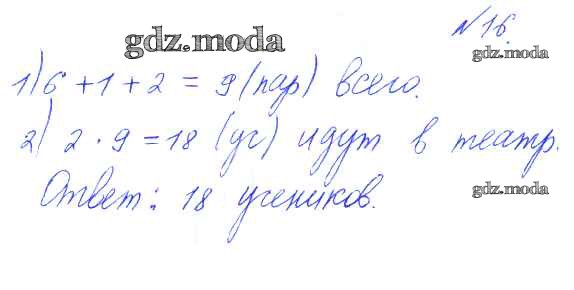 №16.
gdz.moda
gdz.moda
1) 6 + 1 + 2 = 9 (пар) всего.
2) 2 · 9 = 18 (уч) идут в театр.
Ответ: 18 учеников.
gdz.moda